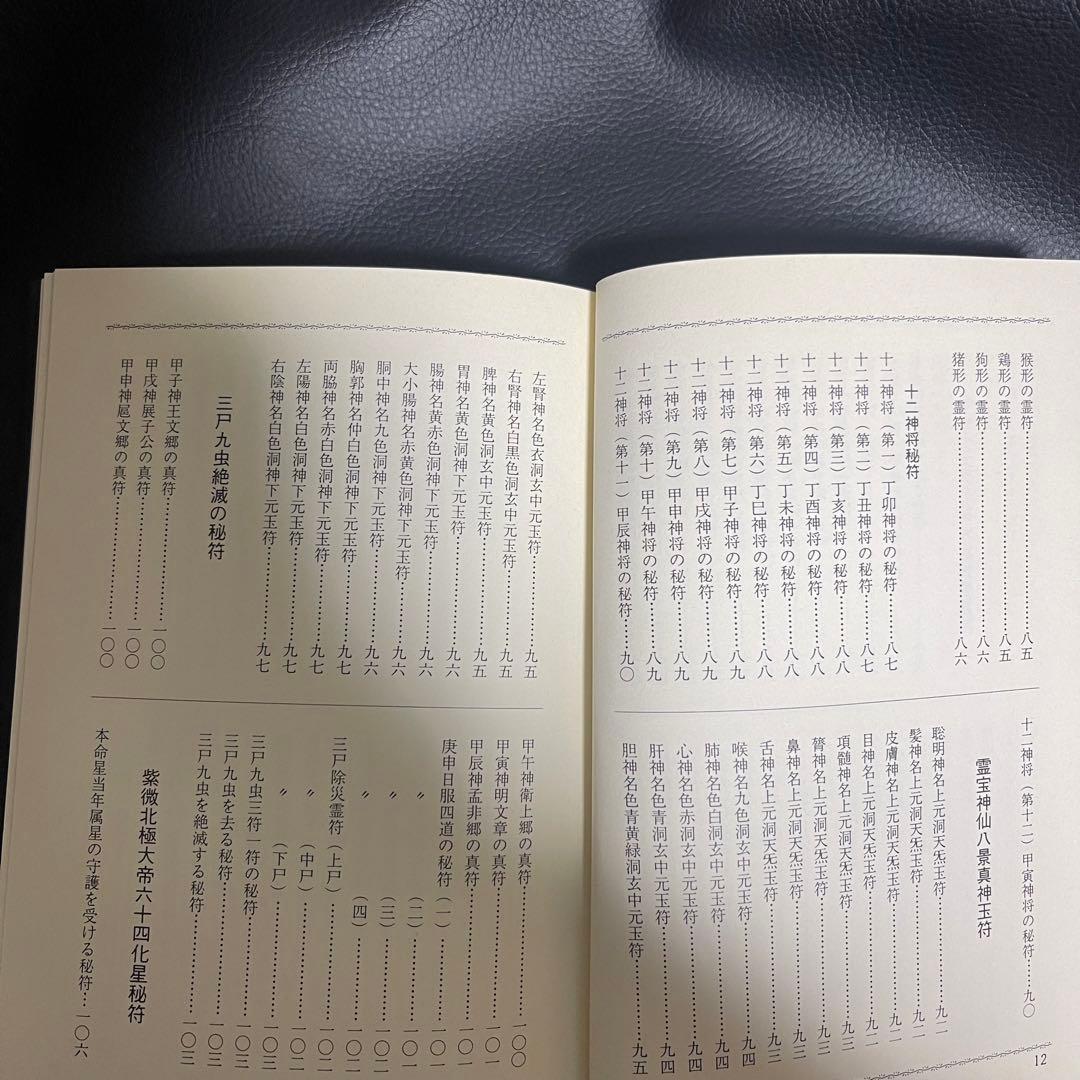 猴形の霊符……八五
鶏形の霊符……八五
狗形の霊符……八六
猪形の霊符……八六
十二神将秘符
十二神将（第一）丁卯神将の秘符……八七
十二神将（第二）丁丑神将の秘符……八七
十二神将（第三）丁亥神将の秘符……八八
十二神将（第四）丁酉神将の秘符……八八
十二神将（第五）丁未神将の秘符……八八
十二神将（第六）丁巳神将の秘符……八八
十二神将（第七）甲子神将の秘符……八九
十二神将（第八）甲戌神将の秘符……八九
十二神将（第九）甲申神将の秘符……八九
十二神将（第十）甲午神将の秘符……八九
十二神将（第十一）甲辰神将の秘符……九〇
十二神将（第十二）甲寅神将の秘符……九〇
霊宝神仙八景真神玉符
聡明神名上元洞天炁玉符……九二
髪神名上元洞天炁玉符……九二
皮膚神名上元洞天炁玉符……九二
目神名上元洞天炁玉符……九二
項髄神名上元洞天炁玉符……九三
膂神名上元洞天炁玉符……九三
鼻神名上元洞天炁玉符……九三
舌神名上元洞天炁玉符……九三
喉神名九色洞玄中元玉符……九四
肺神名色白洞玄中元玉符……九四
心神名色赤洞玄中元玉符……九四
肝神名色青洞玄中元玉符……九四
胆神名色青黄緑洞玄中元玉符……九五
12
左腎神名色衣洞玄中元玉符……九五
右腎神名白黒色洞玄中元玉符……九五
脾神名黄色洞玄中元玉符……九五
胃神名黄色洞神下元玉符……九六
腸神名黄赤色洞神下元玉符……九六
大小腸神名赤黄色洞神下元玉符……九六
胴中神名九色洞神下元玉符……九六
胸郭神名仲白色洞神下元玉符……九七
両脇神名赤白色洞神下元玉符……九七
左陽神名白色洞神下元玉符……九七
右陰神名白色洞神下元玉符……九七
三尸九虫絶滅の秘符
甲子神王文郷の真符……一〇〇
甲戌神展子公の真符……一〇〇
甲申神扈文郷の真符……一〇〇
甲午神衛上郷の真符……一〇〇
甲辰神孟非郷の真符……一〇一
甲寅神明文章の真符……一〇一
庚申日服四道の秘符（一）……一〇一
〃（二）……一〇一
〃（三）……一〇二
〃（四）……一〇二
三尸除災霊符（上尸）……一〇二
〃（中尸）……一〇二
〃（下尸）……一〇二
三尸九虫三符一符の秘符……一〇三
三尸九虫を去る秘符……一〇三
三尸九虫を絶滅する秘符……一〇三
紫微北極大帝六十四化星秘符
本命星当年属星の守護を受ける秘符…一〇六